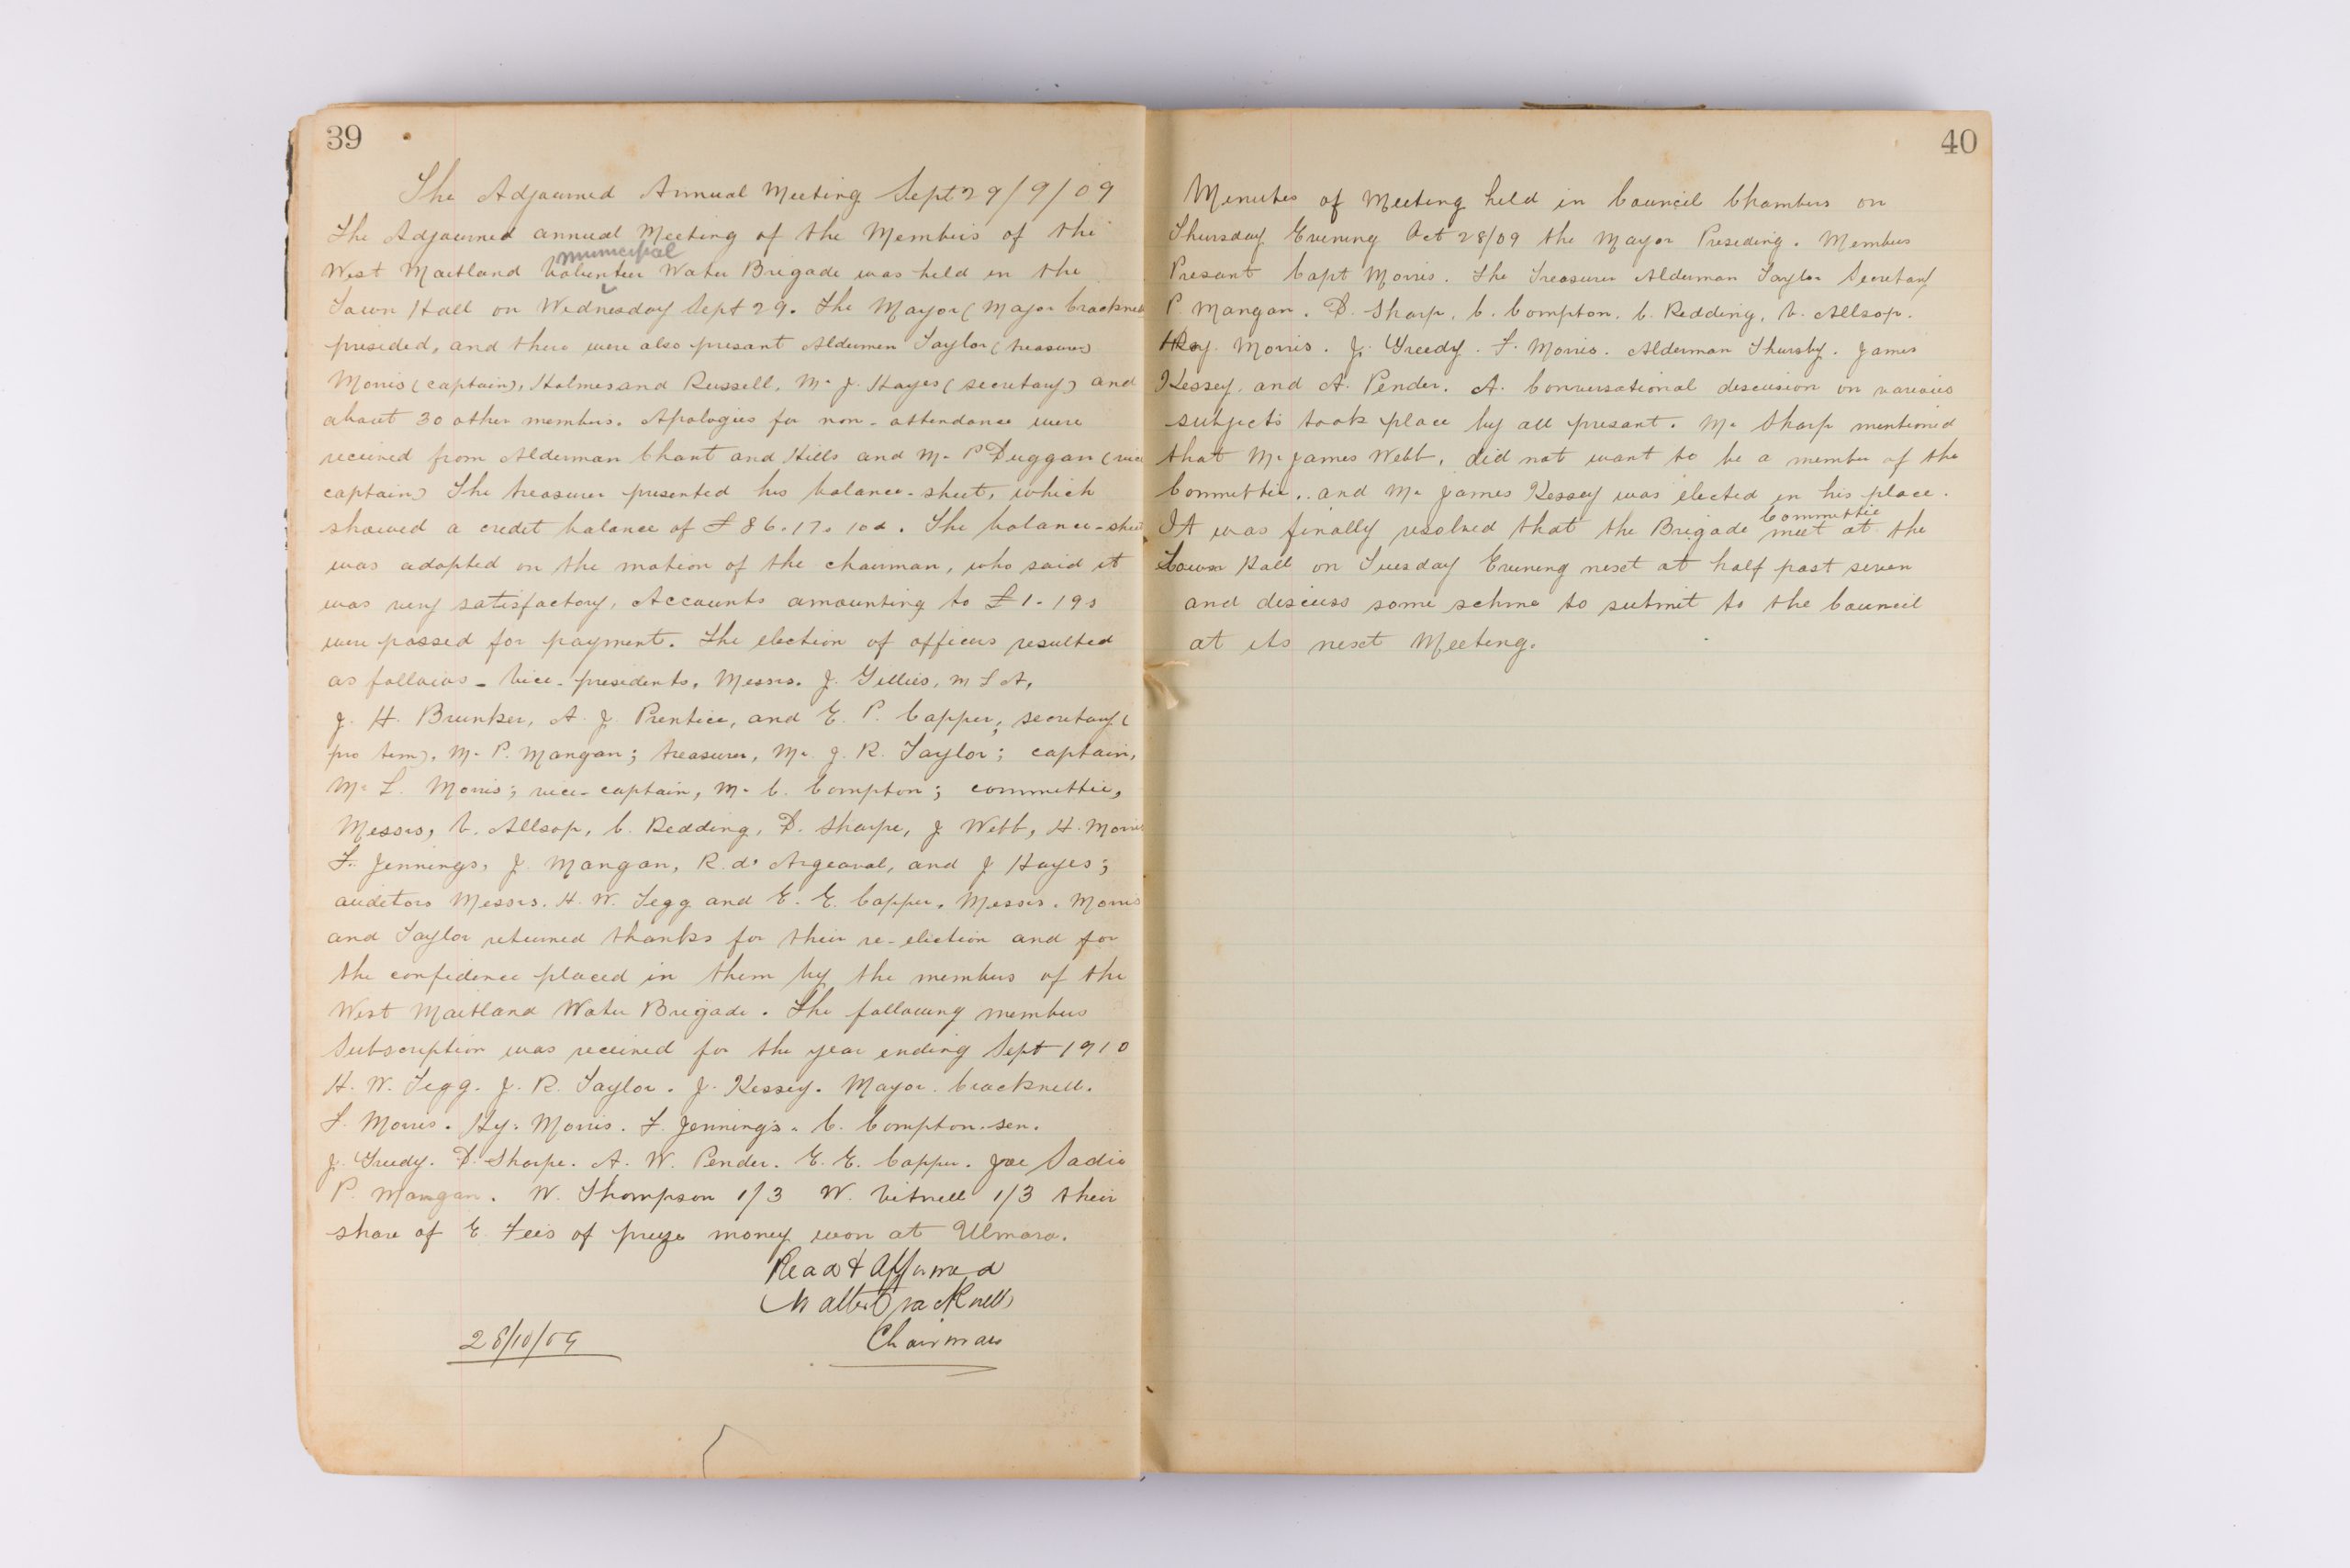 39
The Adjourned Annual Meeting Sept 29/9/09
The Adjourned annual Meeting of the Members of the
municipal
West Maitland Volunteer Water Brigade was held in the
Town Hall on Wednesday Sept 29. The Mayor (Major Cracknell
presided, and there were also presant Aldermen Taylor (treasurer)
Morris (captain), Holmes and Russell, Mr J. Hayes (secretary) and
about 30 other members. Apologies for non-attendance were
received from Alderman Chant and Hills and Mr P Duggan (vice
captain) The treasurer presented his balance-sheet, which
showed a credit balance of £86.17s 10d. The balance-sheet
was adopted on the motion of the chairman, who said it
was very satisfactory, Accounts amounting to £1-19s
were passed for payment. The election of officers resulted
as follows - Vice-presidents, Messrs. J. Gillies, M L A,
J. H. Brunker, A. J. Prentice, and E. P. Capper; secretary (
pro tem), Mr P. Mangan; treasurer, Mr J. R. Taylor; captain,
Mr L. Morris; vice-captain, Mr C. Compton; committie,
Messrs, V. Allsop, C. Redding, D. Sharpe, J Webb, H. Morris
F. Jennings, J. Mangan, R. d' Argeaval, and J Hayes;
auditors Messrs. H. W. Tegg and E. E. Capper. Messrs. Morris
and Taylor returned thanks for their re-eliction and for
the confidence placed in them by the members of the
West Maitland Water Brigade. The following members
Subscription was received for the year ending Sept 1910
H. W. Tegg. J. R. Taylor. J. Kessey. Mayor. Cracknell.
L. Morris. Hy. Morris. F. Jennings. C. Compton-sen.
J. Greedy. D. Sharpe. A. W. Pender. E. E. Capper. Joe Sadie
P. Mangan. W. Thompson 1/3 W. Vitnell 1/3 their
share of E. Fees of prize money won at Ulmara.
Read & Affirmed
Walter Cracknell
28/10/09 Chairman
40
Menutes of Meeting held in Council Chambers on
Thursday Evening Oct 28/09 the Mayor Preseding. Members
Presant Capt Morris. The Treasurer Alderman Taylor Secretary
P. Mangan. D. Sharp. C. Compton. C. Redding, V. Allsop.
Hy. Morris. J. Greedy. F. Morris. Alderman Thursby. James
Kessey. and A. Pender. A. Conversational descusion on various
subjects took place by all presant. Mr Sharp mentioned
that Mr James Webb, did not want to be a member of the
Committie, and Mr James Kessey was elected in his place.
committie
It was finally resolved that the Brigade meet at the
Town Hall on Tuesday Evening next at half past seven
and discuss some schme to submit to the Council
at its next Meeting.